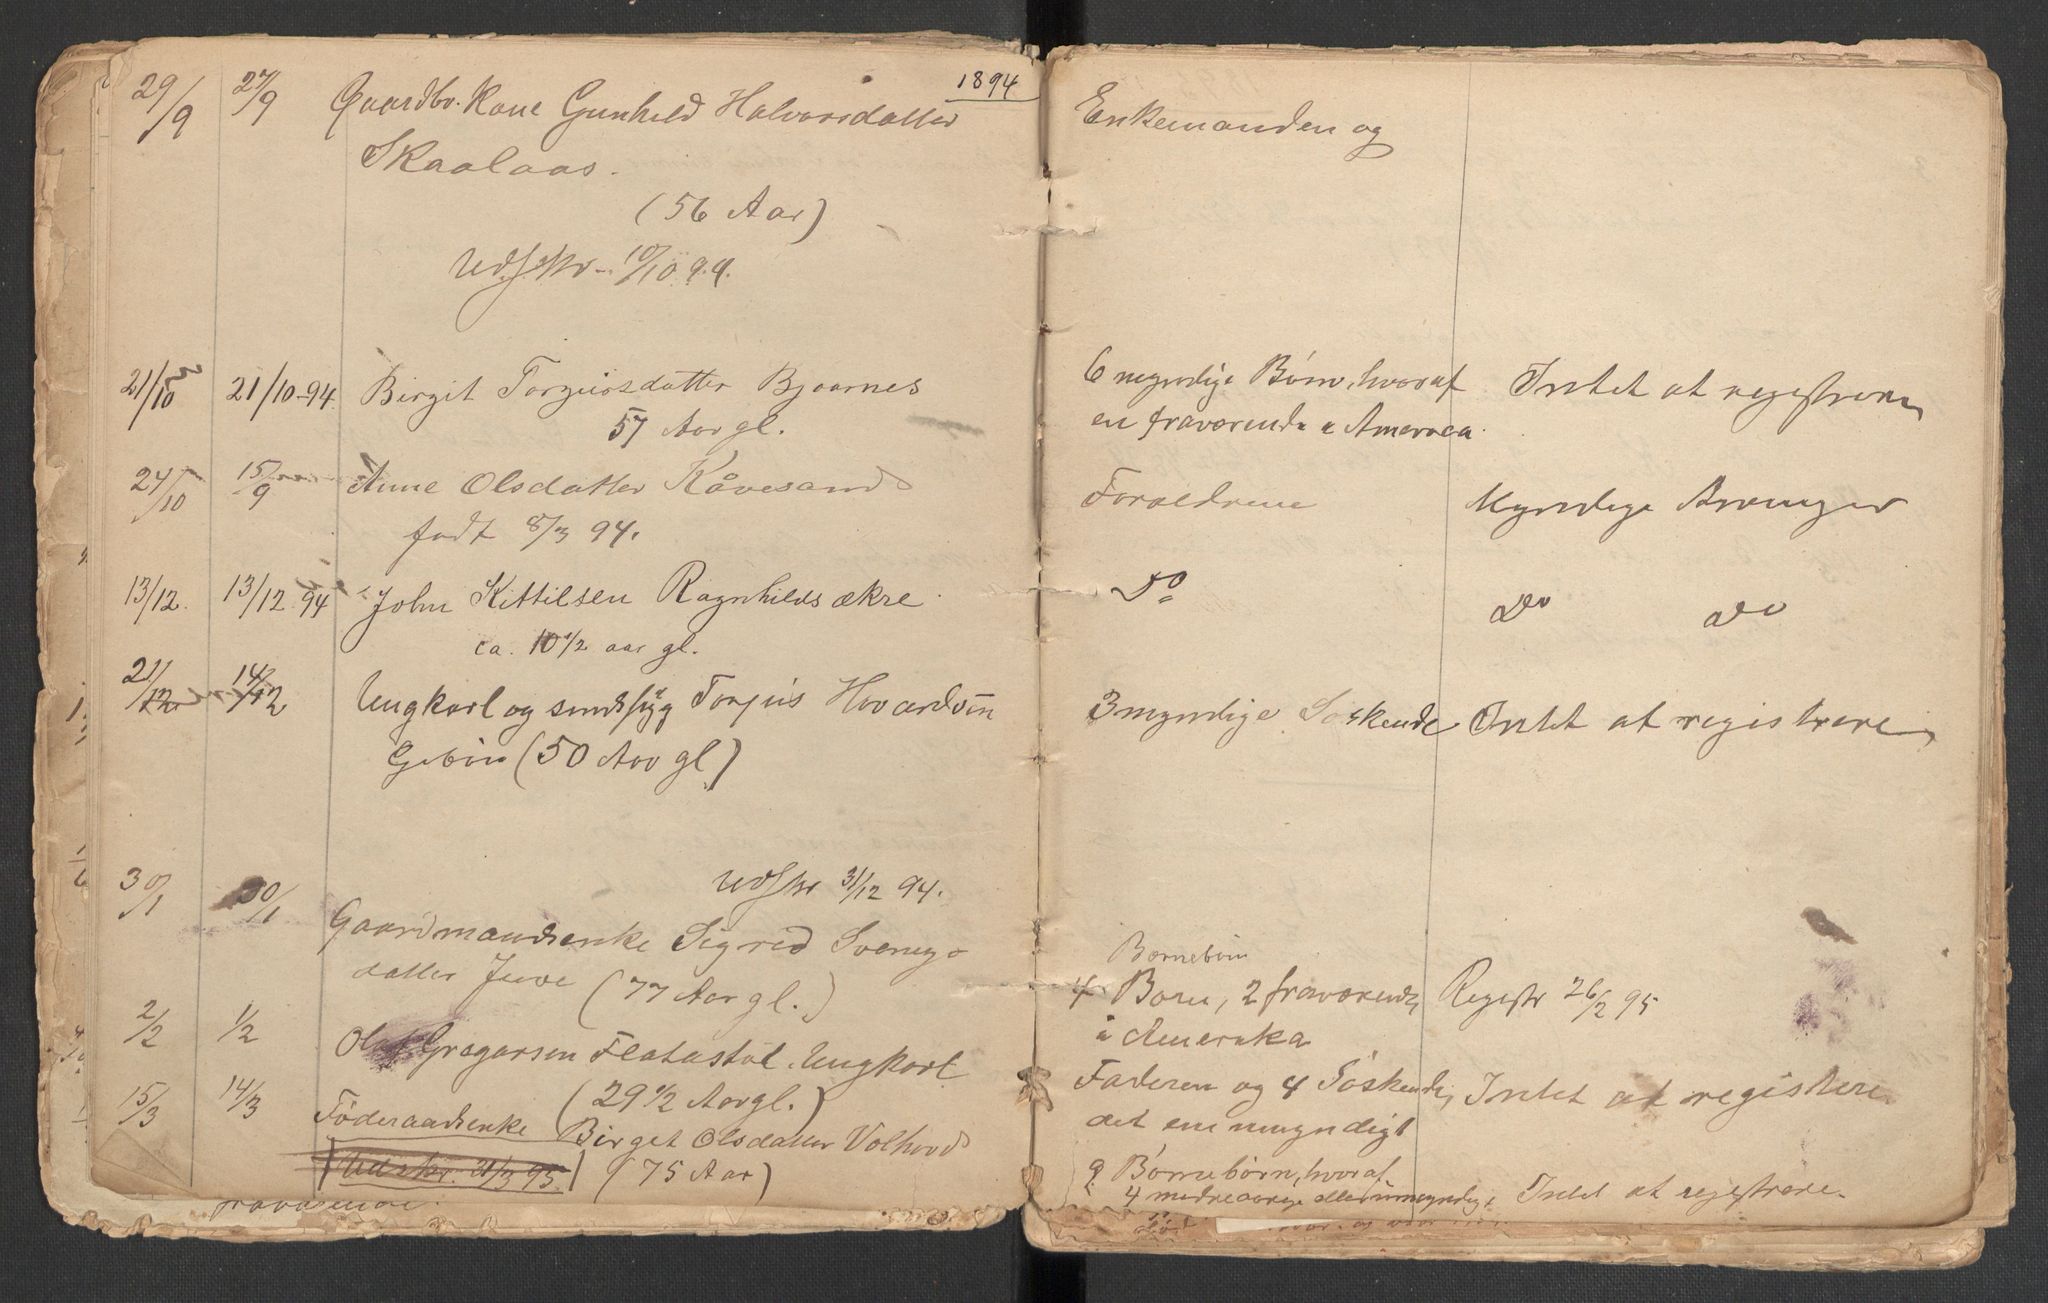 1894
29/9 27/9 Gaardbr. Kone Gunhild Halvorsdatter
Skaalaas.
(56 Aar)
Udskr. 10/10 94.
21/10 21/10-94 Birgit Torgiusdatter Bjaarnes
57 Aar gl.
24/10 15/9 Anne Olsdatter Råvesand
født 8/3 94.
13/12. 13/12 94 John Kittilsen Ragnhildsækre
ca. 10 1/2 aar gl.
21/12 14/12 Ungkarl og sindssyg Torjus Hovardsen
(50 Aar gl)
Udskr 31/12 94.
30/1 30/1 Gaardmandsenke Sigrid Sveings-
datter Juve (77 Aar gl.)
2/2 1/2 Olaf Gregarsen Flatastøl Ungkarl
(29 1/2 Aar gl.)
15/3 14/3 Føderaadsenke Birget Olsdatter Volhovd
Udskr. 21/3 95 (75 Aar)
Enkemanden og
6 myndige Børn, hvoraf Intet at registrere
en fraværende i Amerika
Forældrene Myndige Arvinger
Do Do Do
3 myndige Søskende Intet at registrere
Børnebørn
4 Børn, 2 fraværende Registr 26/2 95
i Amerika
Faderen og 4 Søskende, Intet at registrere
det ene umyndigt
9 Børnebørn, hvoraf
4 mindreaarige eller umyndige Intet at registrere.